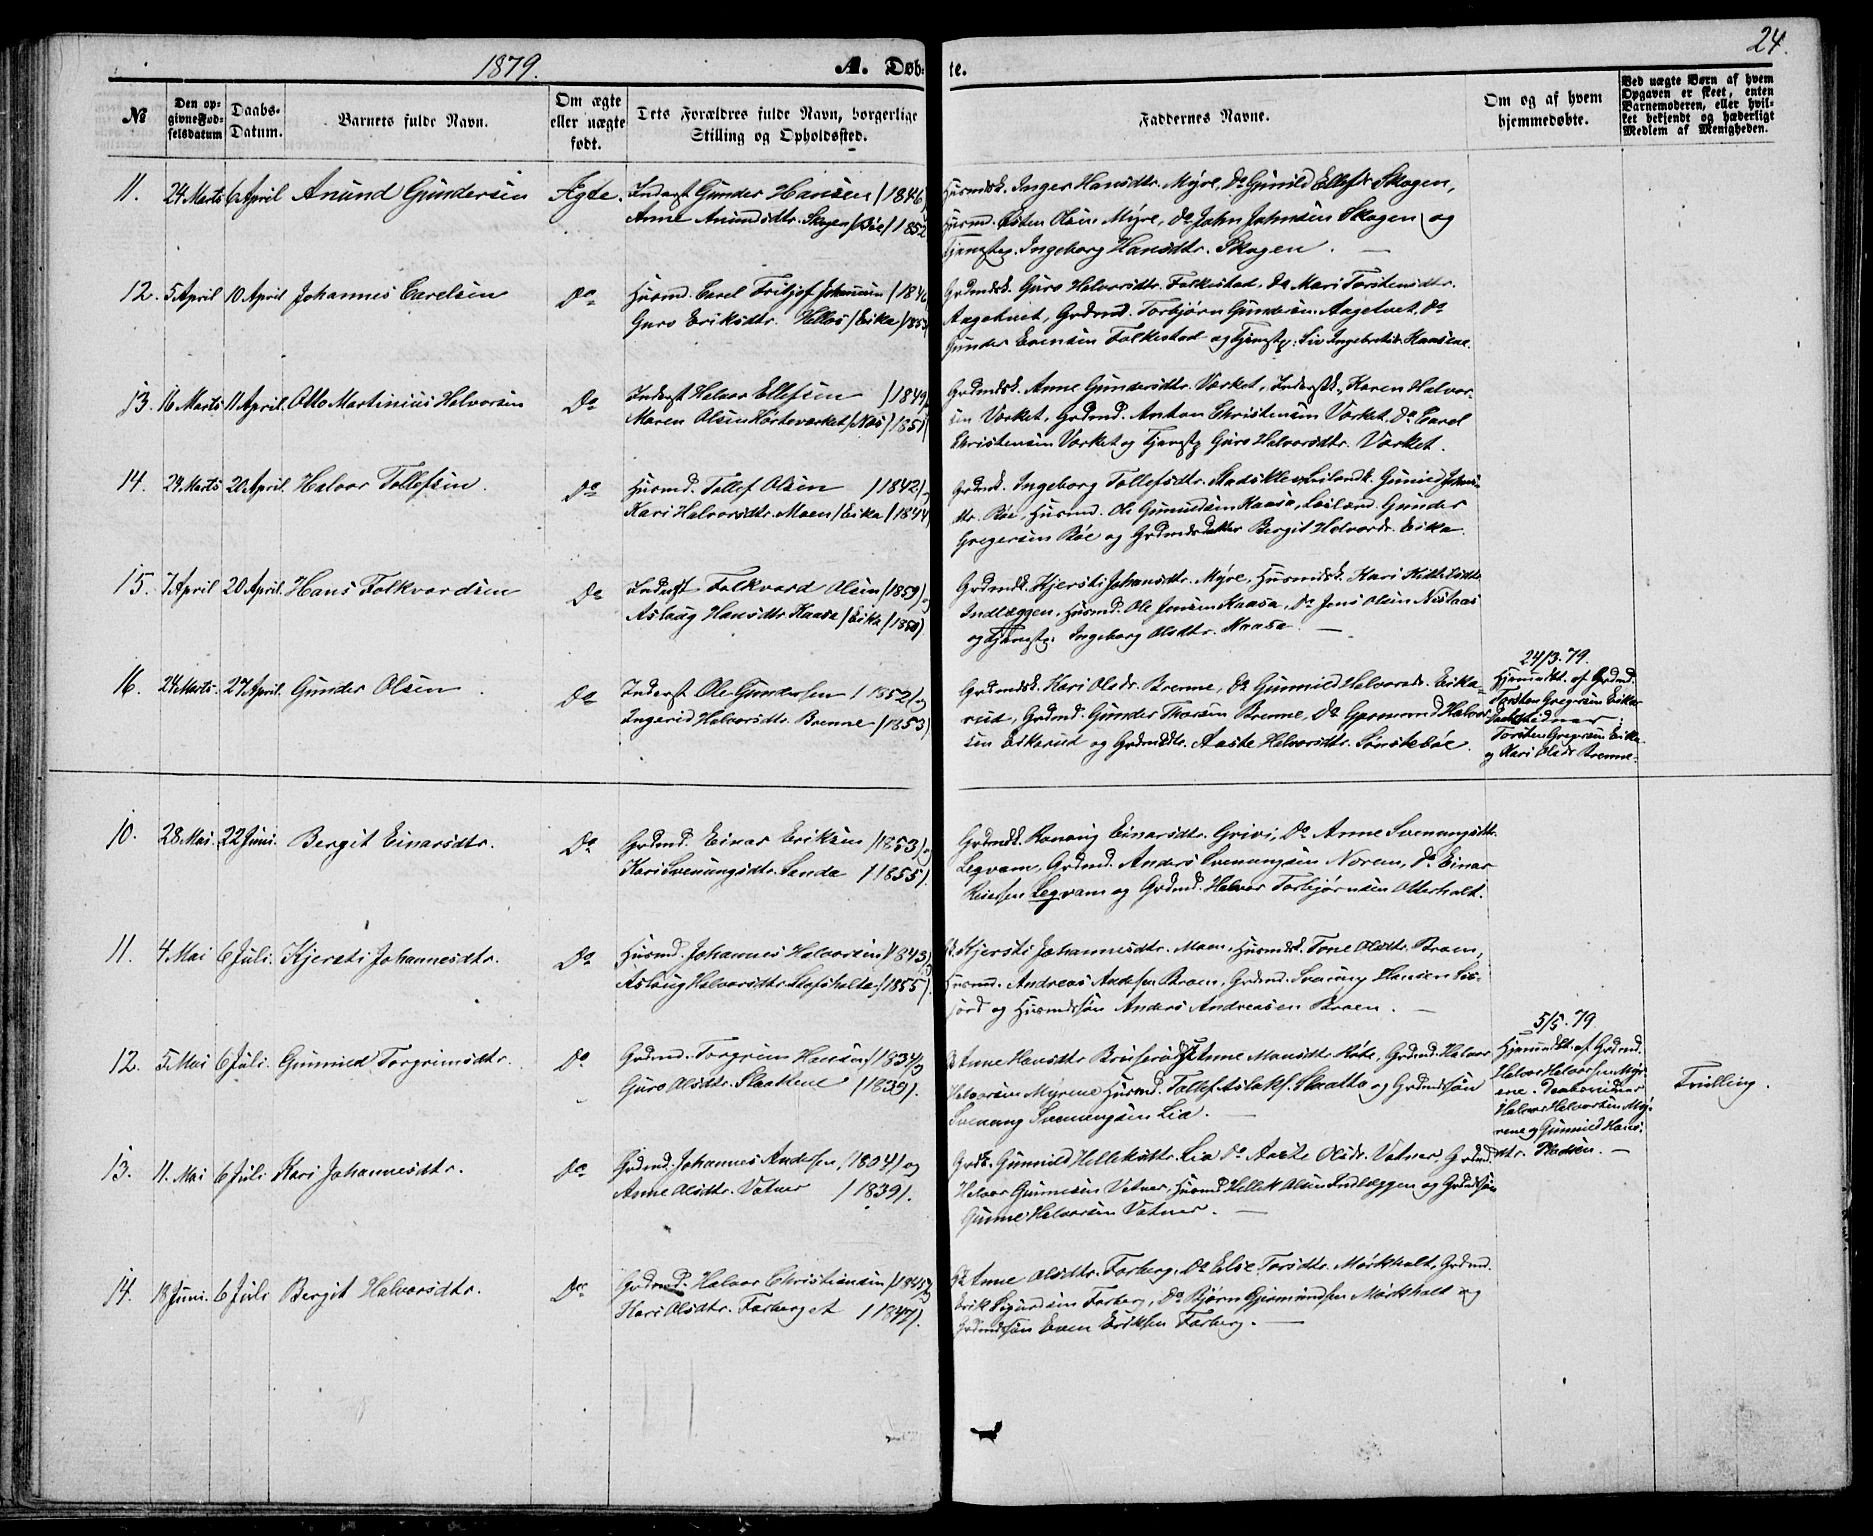 24.
1879.
A. Døb-
te.
№
Den op-
givne Fød-
selsdatum
Daabs-
Datum.
Barnets fulde Navn.
Om ægte
eller uægte
født.
Dets Forældres fulde Navn, borgerlige
Stilling og Opholdssted.
Faddernes Navne.
Om og af hvem
hjemmedøbte.
Ved uægte Børn af hvem
Opgaven er skeet, enten
Barnemoderen, eller hvil-
ket bekjendt og hæderligt
Medlem af Menigheden.
11. 24 Marts 6 April Anund Gundersen Ægte.
Inderst Gunder Hansen /1846/
Anne Anundsdtr. Skogen /Bøe/ 1852
Husmdsk. Inger Hansdtr. Myre, Do Gunild Ellefsdr Skogen,
Husmd. Østen Olsen Myre, Do John Johnsen Skogen og
Tjenestep. Ingeborg Hansdtr. Skogen.
12. 5 April 10 April Johannes Carelsen Do
Husmd. Carel Fritjof Johannsen /1846
Guro Eriksdtr. Hellos /Eika/ 185
Grdmdsk. Guro Halvorsdtr. Folkestad, Do Mari Torstensdtr.
Aagetveit, Grdmd. Torbjørn Gundersen Aagetvet, Do
Gunder Evensen Folkestad og Tjenestp. Liv Ingebretsdr. Kaasene.
13. 16 Marts 11 April. Otto Martinius Halvorsen Do
Inderst Halvor Ellefsen /1849
Maren Olsen Hørtevœrket /Næs/ 1851
Grdmdsk. Anne Gundersdtr. Værket, Inderstk. Karen Halvor-
sen Værket, Grdmd. Anton Christensen Værket, Do Carel
Christensen Værket og Tjenestp Guro Halvorsdtr. Værket.
14. 29 Marts 20 April. Halvor Tollefsen. Do
Husmd. Tollef Olsen /1842/
Kari Halvorsdtr. Moen /Eika/ 1844
Grdmdk. Ingeborg Tollefsdtr. Stadskleiv, Leilandk. Gunild Johns-
dtr. Bøe, Husmd. Ole Gunuldsen Kaasa, Leilænd. Gunder
Gregersen Bøe og Grdmdsdatter Bergit Halvorsdr. Eika.
15. 7 April 20 April. Hans Folkvordsen Do
Inderst Folkvord Olsen /1859/ og
Aslaug Hansdtr Kaasa /Eika/ 1850/
Grdmdk. Kjersti Johansdtr. Myre, Husmdsk. Kari Kittilsdtr.
Indlæggen, Husmd. Ole Jensen Kaasa, Do Jens Olsen Nistaas
og Tjenestp. Ingeborg Olsdtr. Kaasa.
16. 24 Marts. 27 April. Gunder Olsen Do
Inderst Ole Gundersen /1852/ og
Ingerid Halvorsdtr. Brenne /1853/
Grdmdsk. Kari Olsdr. Brenne, Do Gunnild Halvorsdr. Eika-
rud, Grdmd. Gunder Thorsen Brenne, Do Germund Halvor-
sen Eikarud og Grdmdsdtr. Aaste Halvorsdtr. Sønstebøe.
24/3. 79.
Hjemmedbt. af Grdmd.
Torsten Gregersen Eika
Daabsvidner:
Torsten Gregersen Eika
og Kari Olsdr Brenne.
10. 28 Mai. 22 Juni. Bergit Einarsdtr. Do
Grdmd. Einar Eriksen /1853/ og
Kari Svenungsdtr. Sanda /1855/.
Grdmdk. Ronaug Einarsdtr. Grivi, Do Anne Svenungsdtr.
Legvam, Grdmd. Anders Svenungsen Norem, Do Einar
Reiersen Legvam og Grdmd. Halvor Torbjørnsen Otterholt.
11. 4 Mai 6 Juli. Kjersti Johannesdtr. Do
Husmd. Johannes Halvorsen /1843/
Aslaug Halvorsdtr. Stofsholte /1855/
Kjersti Johannesdtr. Moen, Husmdsk. Tone Olsdtr. Broen,
Husmd. Andreas Andersen Broen, Grdmd. Svenung Hansen Lis-
jord og Husmdssøn Anders Andreasen Broen.
12. 5 Mai 6 Juli. Gunnild Torgrimsdtr. Do
Grdmd. Torgrim Hansen /1834/ og
Guro Olsdtr. Slaakene /1839/.
Anne Hansdtr Bruserød, Anne Monsdtr Kåse, Grdmd. Halvor
Halvorsen Myrene, Husmd. Tollef Aslaks. Skaatto og Grdmdssøn
Svenung Svenungsen Lia.
5/5. 79
Hjemmedbt. af Grdmd.
Halvor Halvorsen Myr-
ene. Daabsvidner
Halvor Halvorsen My-
rene og Gunnild Hans-
dtr. Pladsen.
Tvilling.
13. 11. Mai 6 Juli Kari Johannesdtr. Do
Grdmd. Johannes Andersen /1804/ og
Anne Olsdtr. Vatnar /1839/.
Grdk. Gunnild Helleksdtr. Lia Do Aaste Olsdr. Vatnar, Grdmd.
Halvor Gunnesen Vatnar, Husmd Hellek Olsen Indlæggen og Grdmdssøn
Gunne Halvorsen Vatnar.
14. 13 Juni. 6 Juli Bergit Halvorsdtr. Do
Grdmd. Halvor Christiansen /1845/ og
Kari Olsdtr. Farberget /1847/.
Anne Olsdtr. Farberg, Do Else Torsdtr. Mørkholt, Grdmd.
Erik Sigurdsen Farberg, Do Bjørn Gjermundsen Mørkholt og
Grdmdssøn Even Eriksen Farberg.